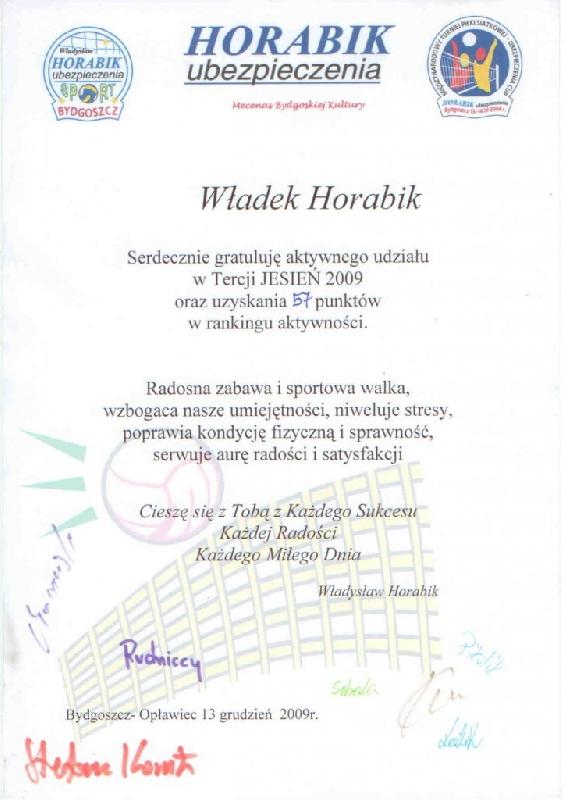 Władysław
HORABIK
ubezpieczenia
SPORT
BYDGOSZCZ
HORABIK
ubezpieczenia
Mecenas Bydgoskiej Kultury
MIĘDZYNARODOWY TURNIEJ PIŁKI SIATKOWEJ - UBEZPIECZENIA CUP
HORABIK ubezpieczenia
Władek Horabik
Serdecznie gratuluję aktywnego udziału
w Tercji JESIEŃ 2009
oraz uzyskania 57 punktów
w rankingu aktywności.
Radosna zabawa i sportowa walka,
wzbogaca nasze umiejętności, niweluje stresy,
poprawia kondycję fizyczną i sprawność,
serwuje aurę radości i satysfakcji
Cieszę się z Tobą z Każdego Sukcesu
Każdej Radości
Każdego Miłego Dnia
Władysław Horabik
Rudniccy
Bydgoszcz- Opławiec 13 grudzień 2009r.